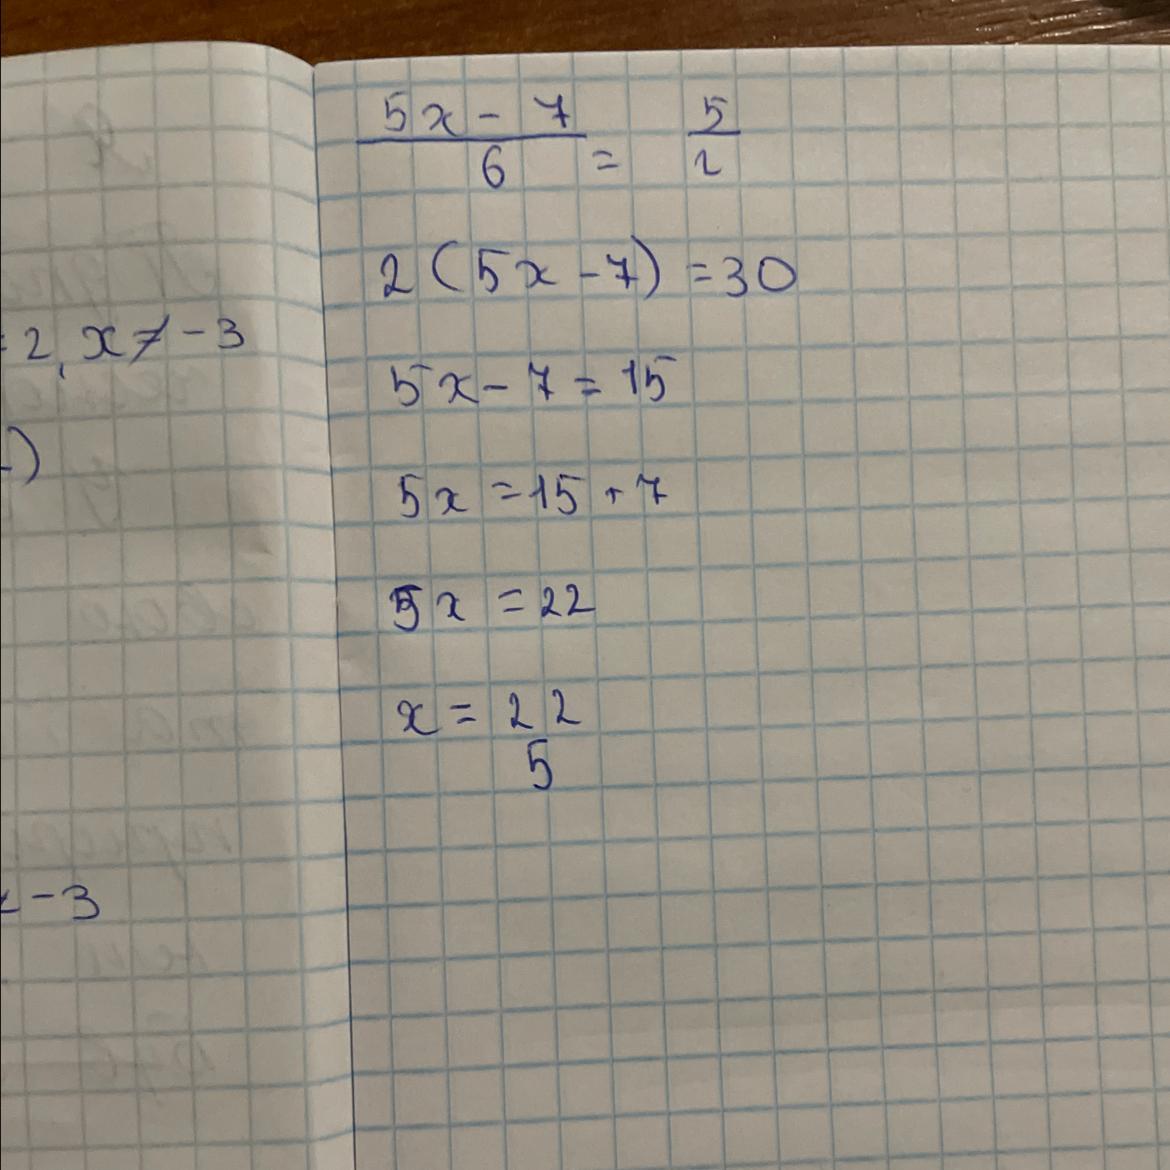 = 2, x ≠ -3
-)
-3
5x - 7
6 =
5
2
2 (5x - 7) = 30
5x - 7 = 15
5x = 15 + 7
5x = 22
x = 22
5